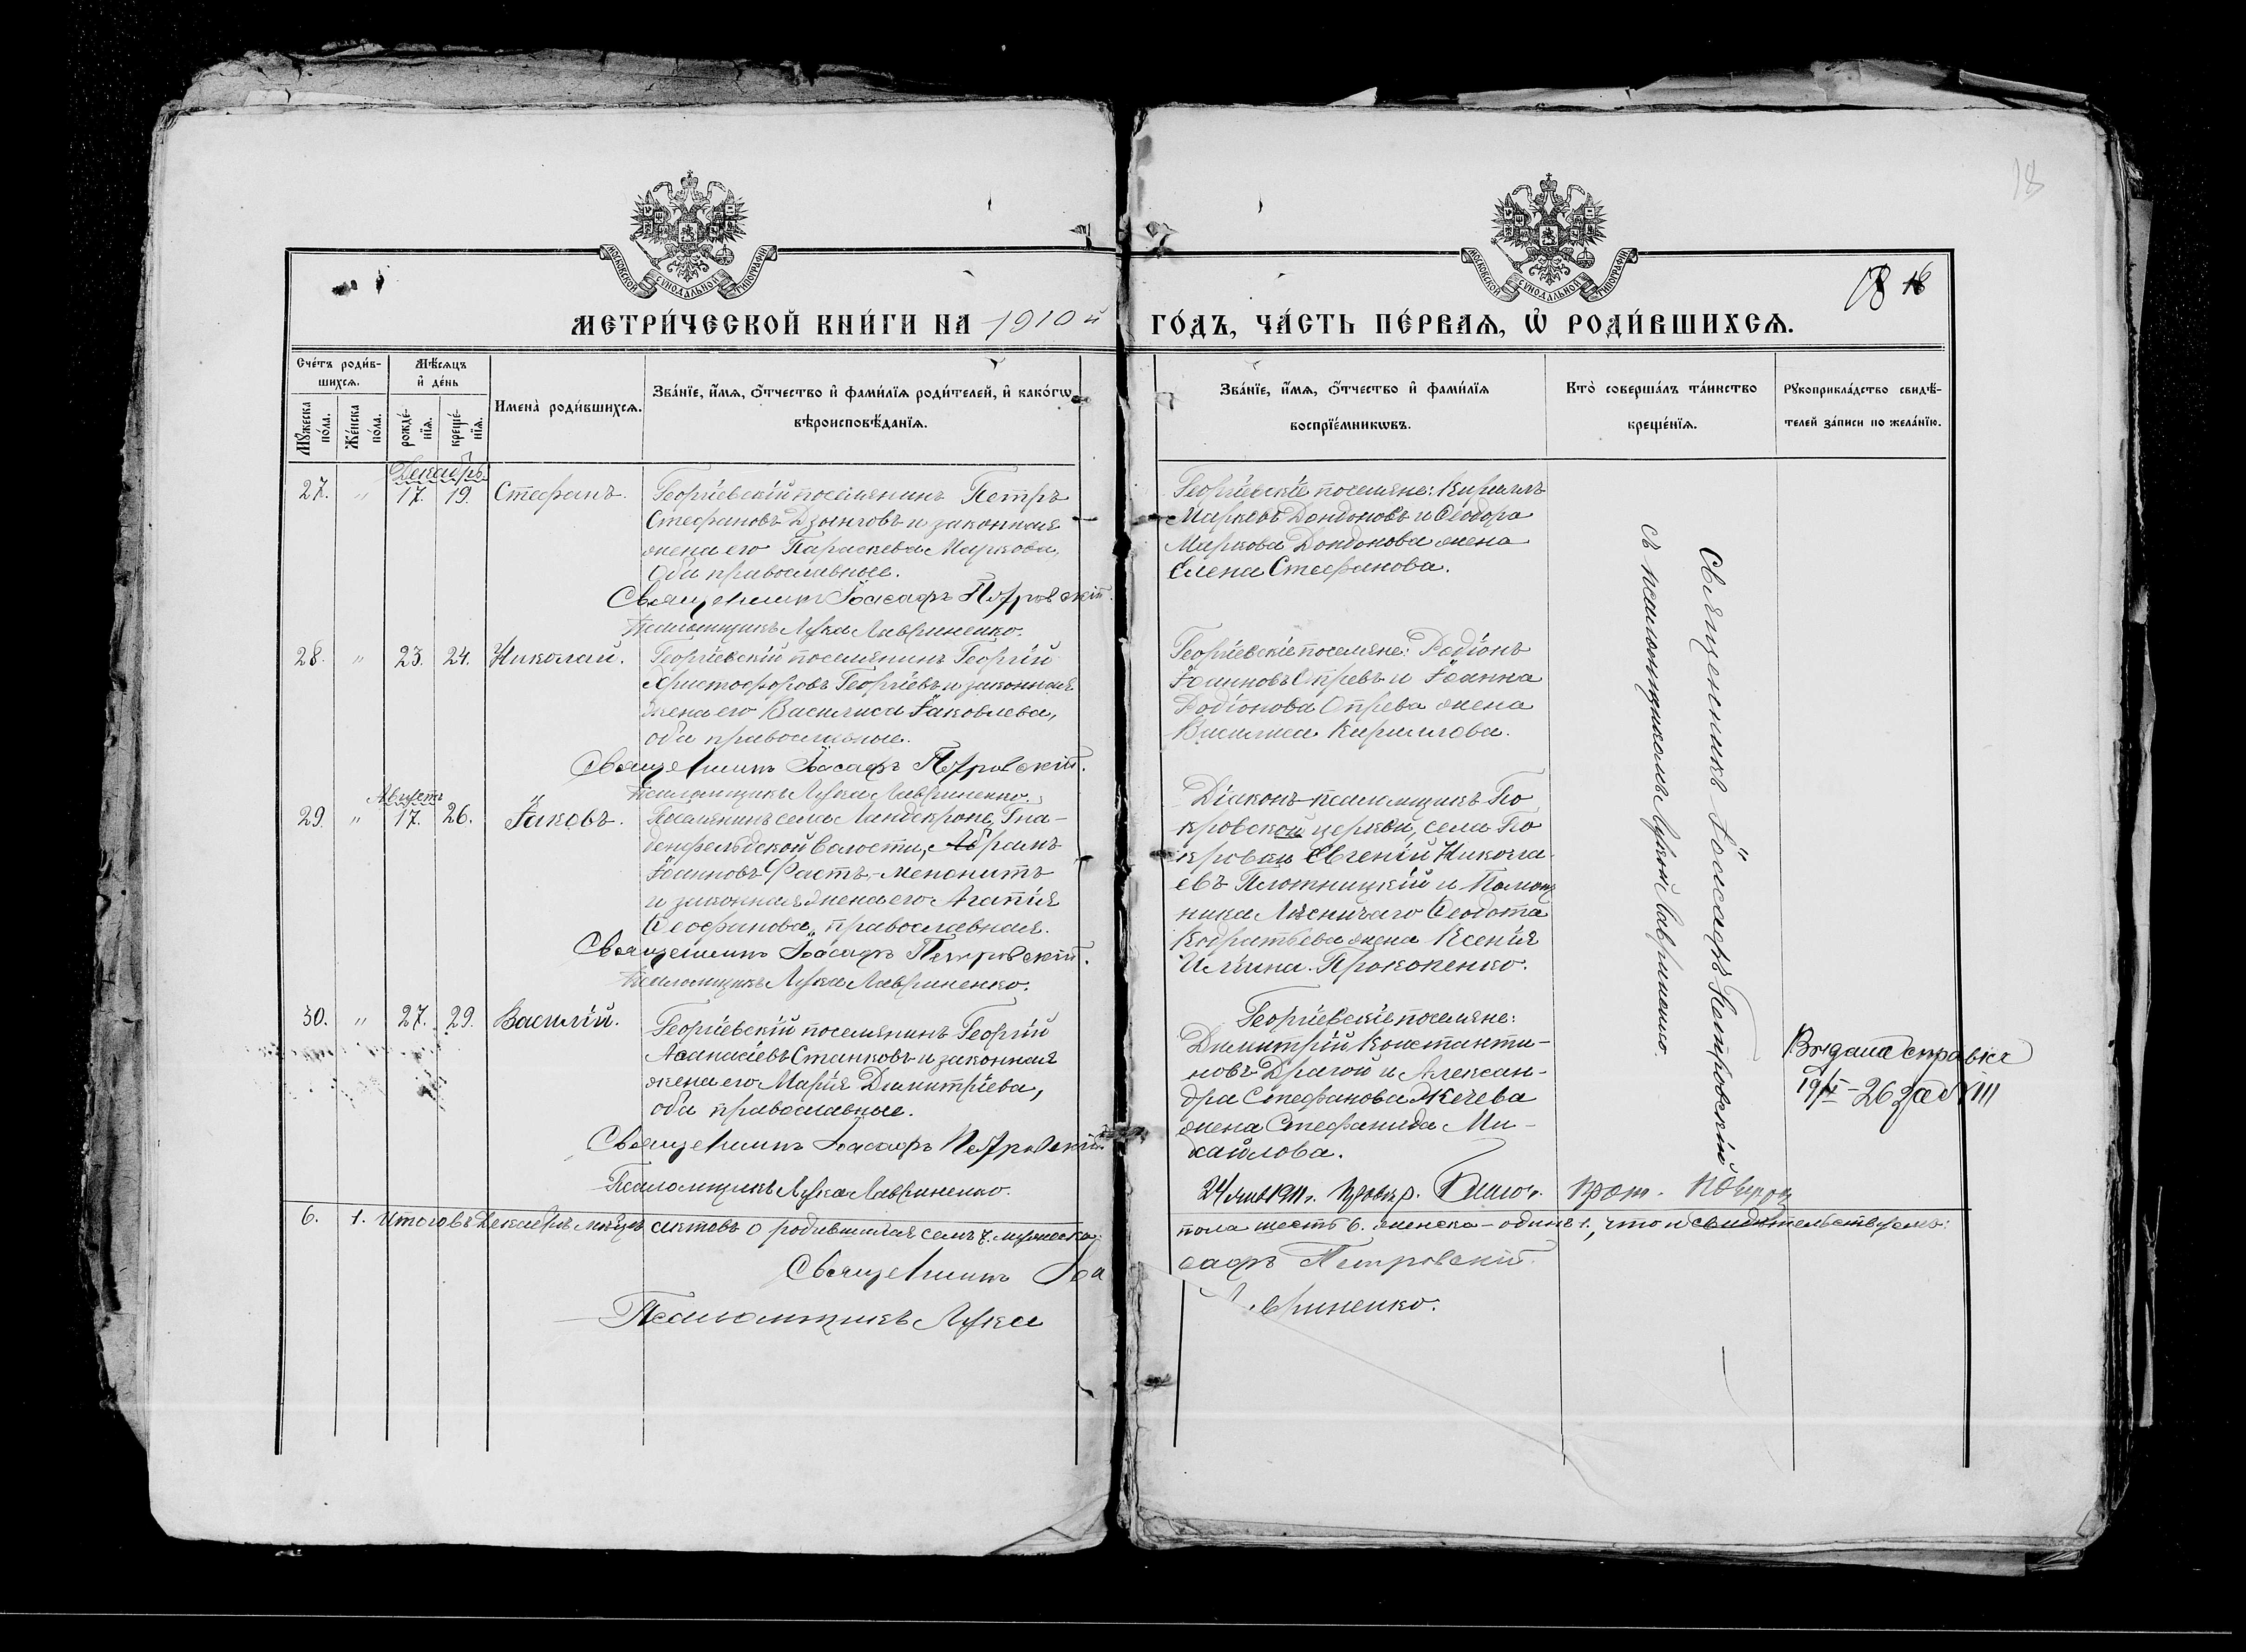 18
МОСКОВСКОЙ СУНОДАЛЬНОЙ ТИПОГРАФІИ
МОСКОВСКОЙ СУНОДАЛЬНОЙ ТИПОГРАФІИ
18
МЕТРИ́ЧЕСКОЙ КНИ́ГИ НА 1910 й
ГО́ДЪ, ЧА́СТЬ ПЕ́РВАѦ, Ѡ҆ РОДИ́ВШИХСѦ.
Сче́тъ роди́вшихсѧ.
Мꙋ́жеска по́ла.
Же́нска по́ла.
Мѣ́сѧцъ и҆ де́нь
рожде́нїѧ.
креще́нїѧ.
Имена̀ роди́вшихсѧ.
Зва́нїе, и҆́мѧ, ѻ҆́тчество и҆ фами́лїѧ роди́телей, и҆ како́гѡ
вѣроисповѣ́данїѧ.
Зва́нїе, и҆́мѧ, ѻ҆́тчество и҆ фами́лїѧ
воспрїе́мникѡвъ.
Кто̀ соверша́лъ та́инство
креще́нїѧ.
Рꙋкоприкла́дство свидѣ́-
телей за́писи по жела́нїю.
Декабрь
27. " 17. 19. Стефанъ.
Георгіевскій поселянинъ Петръ
Стефановъ Дзынговъ и законная
жена его Параскева Маркова,
оба православные.
Священникъ Іоасафъ Петровскій.
Псаломщикъ Лука Лавриненко.
Георгіевскіе поселяне: Кириллъ
Марковъ Дондоновъ и Ѳеодора
Маркова Дондонова жена
Елена Стефанова.
28. " 23. 24. Николай.
Георгіевскій поселянинъ Георгій
Христофоровъ Георгіевъ и законная
жена его Василиса Іаковлева,
оба православные.
Священникъ Іоасафъ Петровскій.
Псаломщикъ Лука Лавриненко.
Георгіевскіе поселяне: Родіонъ
Іоанновъ Опревъ и Іоанна
Родіонова Опрева жена
Василиса Кириллова.
Августъ
29. " 17. 26. Іаковъ.
Поселянинъ села Ландскроне, Гна-
денфельдской волости, Абрамъ
Іоанновъ Фастъ-менонитъ
и законная жена его Агапія
Ѳеофанова, православная.
Священникъ Іоасафъ Петровскій.
Псаломщикъ Лука Лавриненко.
Діаконъ-псаломщикъ По
кровской церкви, села По
кровки Евгеній Никола-
евъ Плотницкій и Помощ
ника Лѣсничаго Ѳеодота
Кодратьева жена Ксенія
Илліина Прокопенко.
30. " 27. 29. Василій.
Георгіевскій поселянинъ Георгій
Аѳанасіевъ Станковъ и законная
жена его Марія Димитріева,
оба православные.
Священникъ Іоасафъ Петровскій.
Псаломщикъ Лука Лавриненко.
Георгіевскіе поселяне:
Димитрій Константи-
новъ Драгой и Алексан-
дра Стефанова Жечева
жена Стефанида Ми-
хайлова.
Священникъ Іоасафъ Петровскій
съ псаломщикомъ Лукой Лавриненко.
Выдана справка
24 янв 1911 г. провѣр. Благоч. прот.
6. 1. Итого въ Декабрѣ мѣсяцѣ актовъ о родившихся семь 7. мужеска
пола шесть 6. женска - одинъ 1., что и свидѣтельствуемъ:
Священникъ Іоа
сафъ Петровскій.
Псаломщикъ Лука
вриненко.